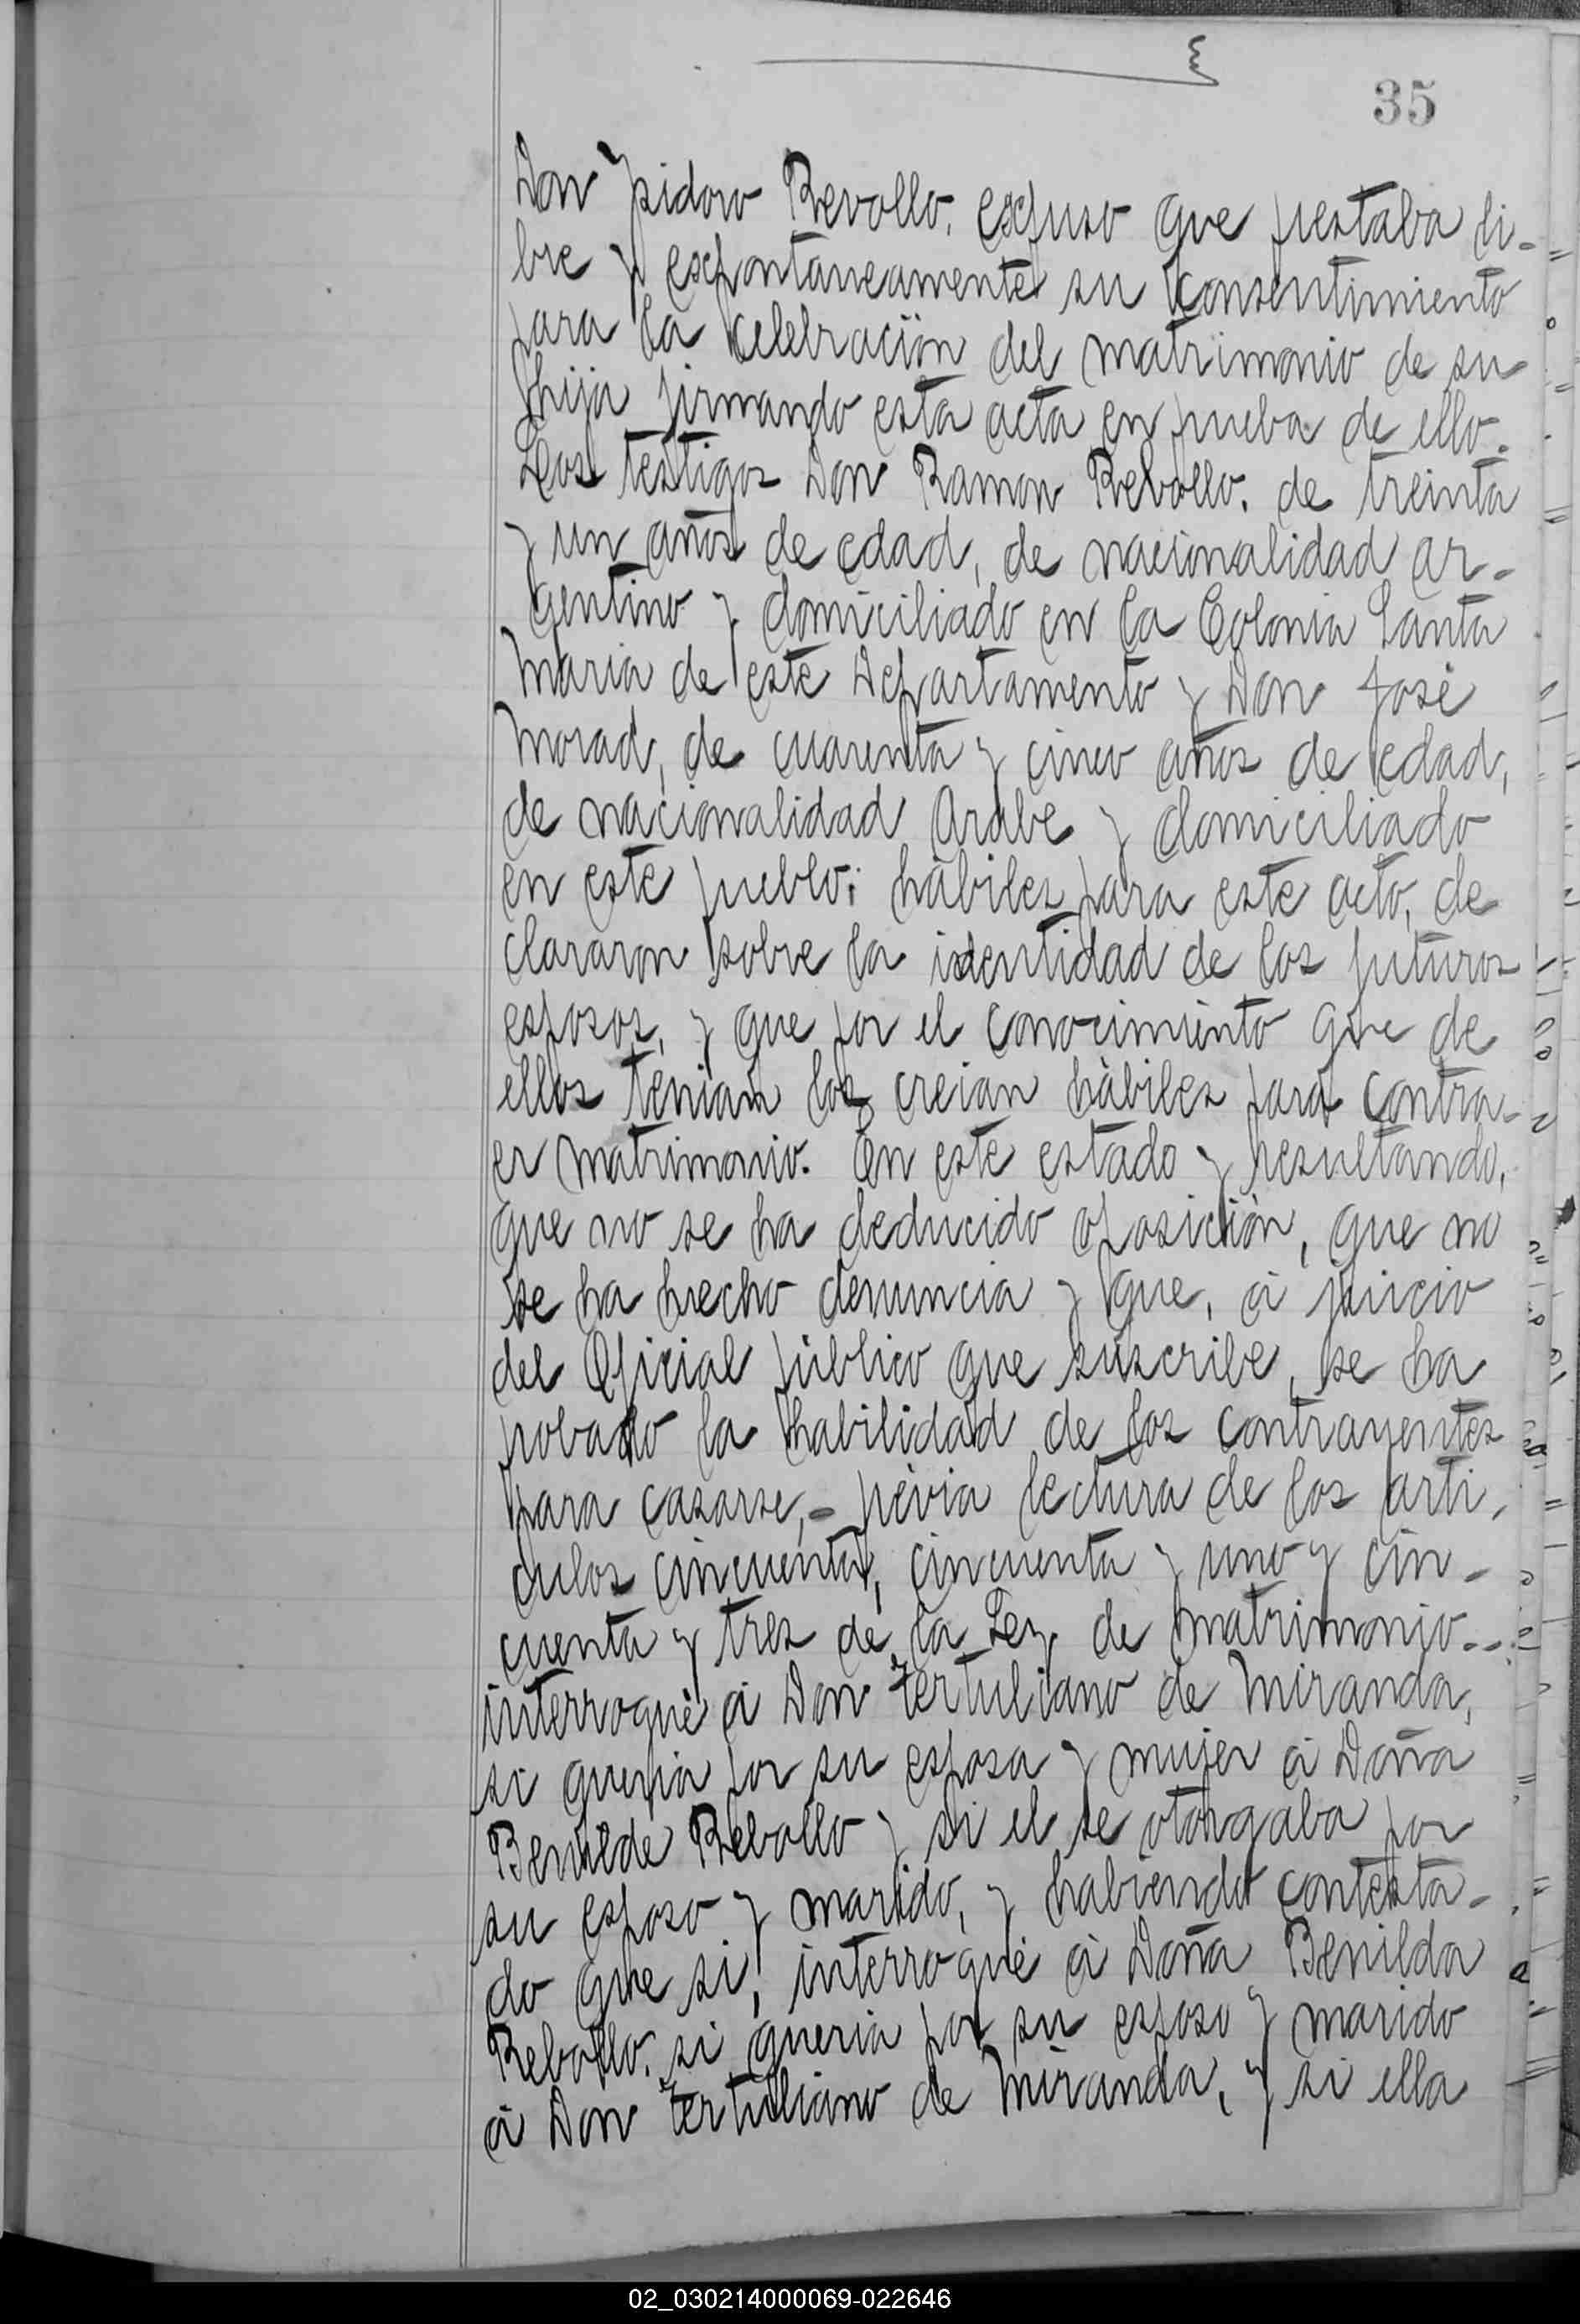 35
Don Ysidoro Revollo, expuso que prestaba li-
bre y expontaneamente su consentimiento
para la celebración del matrimonio de su
hija firmando esta acta en prueba de ello.
Los testigos Don Ramon Rebollo, de treinta
y un años de edad, de nacionalidad ar-
gentino y domiciliado en la Colonia Santa
Maria de este Departamento y Don José
Morad, de cuarenta y cinco años de edad,
de nacionalidad Arabe y domiciliado
en este pueblo; hábiles para este acto, de
clararon sobre la identidad de los futuros
esposos, y que por el conocimiento que de
ellos tenian los creian hàbiles para contra-
er matrimonio. En este estado y resultando,
que no se ha deducido oposición, que no
se ha hecho denuncia y que, à juicio
del Oficial pùblico que suscribe, se ha
probado la habilidad de los contrayentes
para casarse,- prèvia lectura de los arti-
culos cincuenta, cincuenta y uno y cin-
cuenta y tres de la Ley de matrimonio.-
interroguè à Don Tertuliano de Miranda,
si queria por su esposa y mujer à Doña
Benilde Rebollo y si el se otorgaba por
su esposo y marido, y habiendo contesta-
do que si, interroguè à Doña Benilda
Rebollo, si queria por su esposo y marido
à Don Tertuliano de Miranda, y si ella
02_030214000069-022646